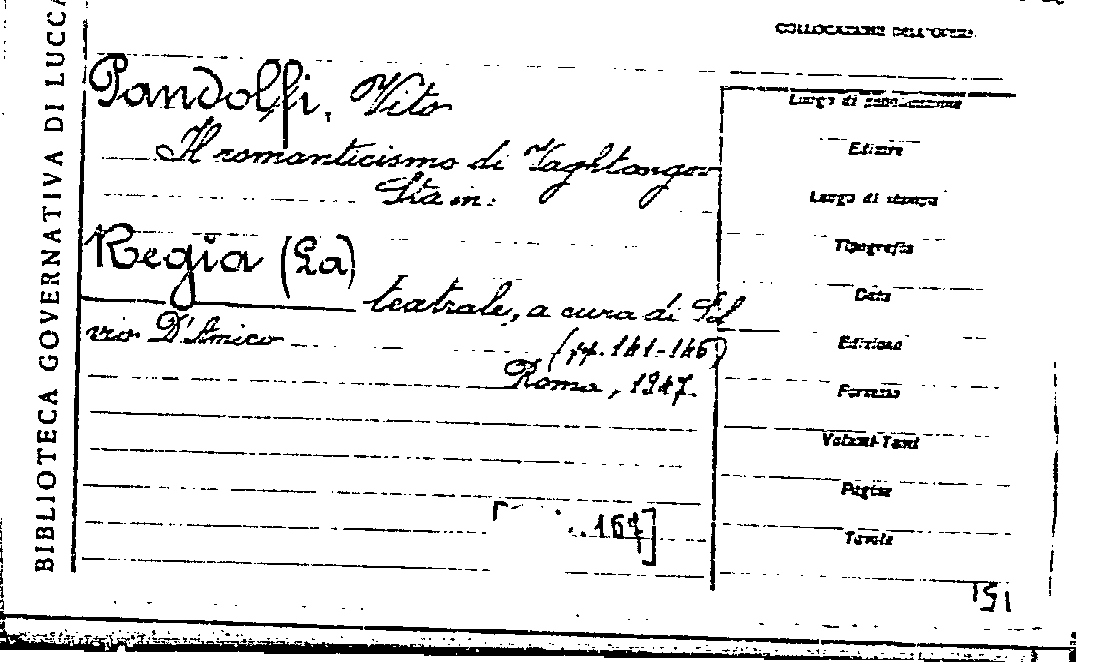 BIBLIOTECA GOVERNATIVA DI LUCCA
COLLOCAZIONE DELL'OPERA
Pandolfi, Vito
Il romanticismo di Vaghtangov
Sta in:
Regia (La)
teatrale, a cura di Sil
vio D'Amico
(pp. 141-146)
Roma, 1947.
167]
Luogo di pubblicazione
Editore
Luogo di stampa
Tipografia
Data
Edizione
Formato
Volumi-Tomi
Pagine
Tavole
151